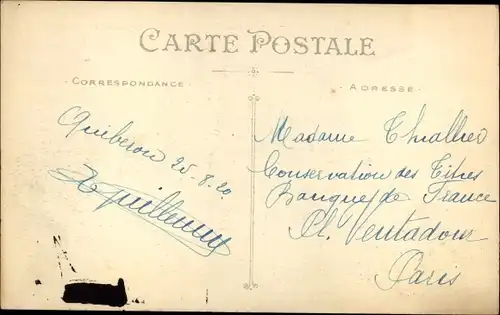 CARTE POSTALE
CORRESPONDANCE
ADRESSE
Quiberon 25.8.20.
Madame Thiallier
Conservation des Titres
Banque de France
Pl. Ventadour
Paris